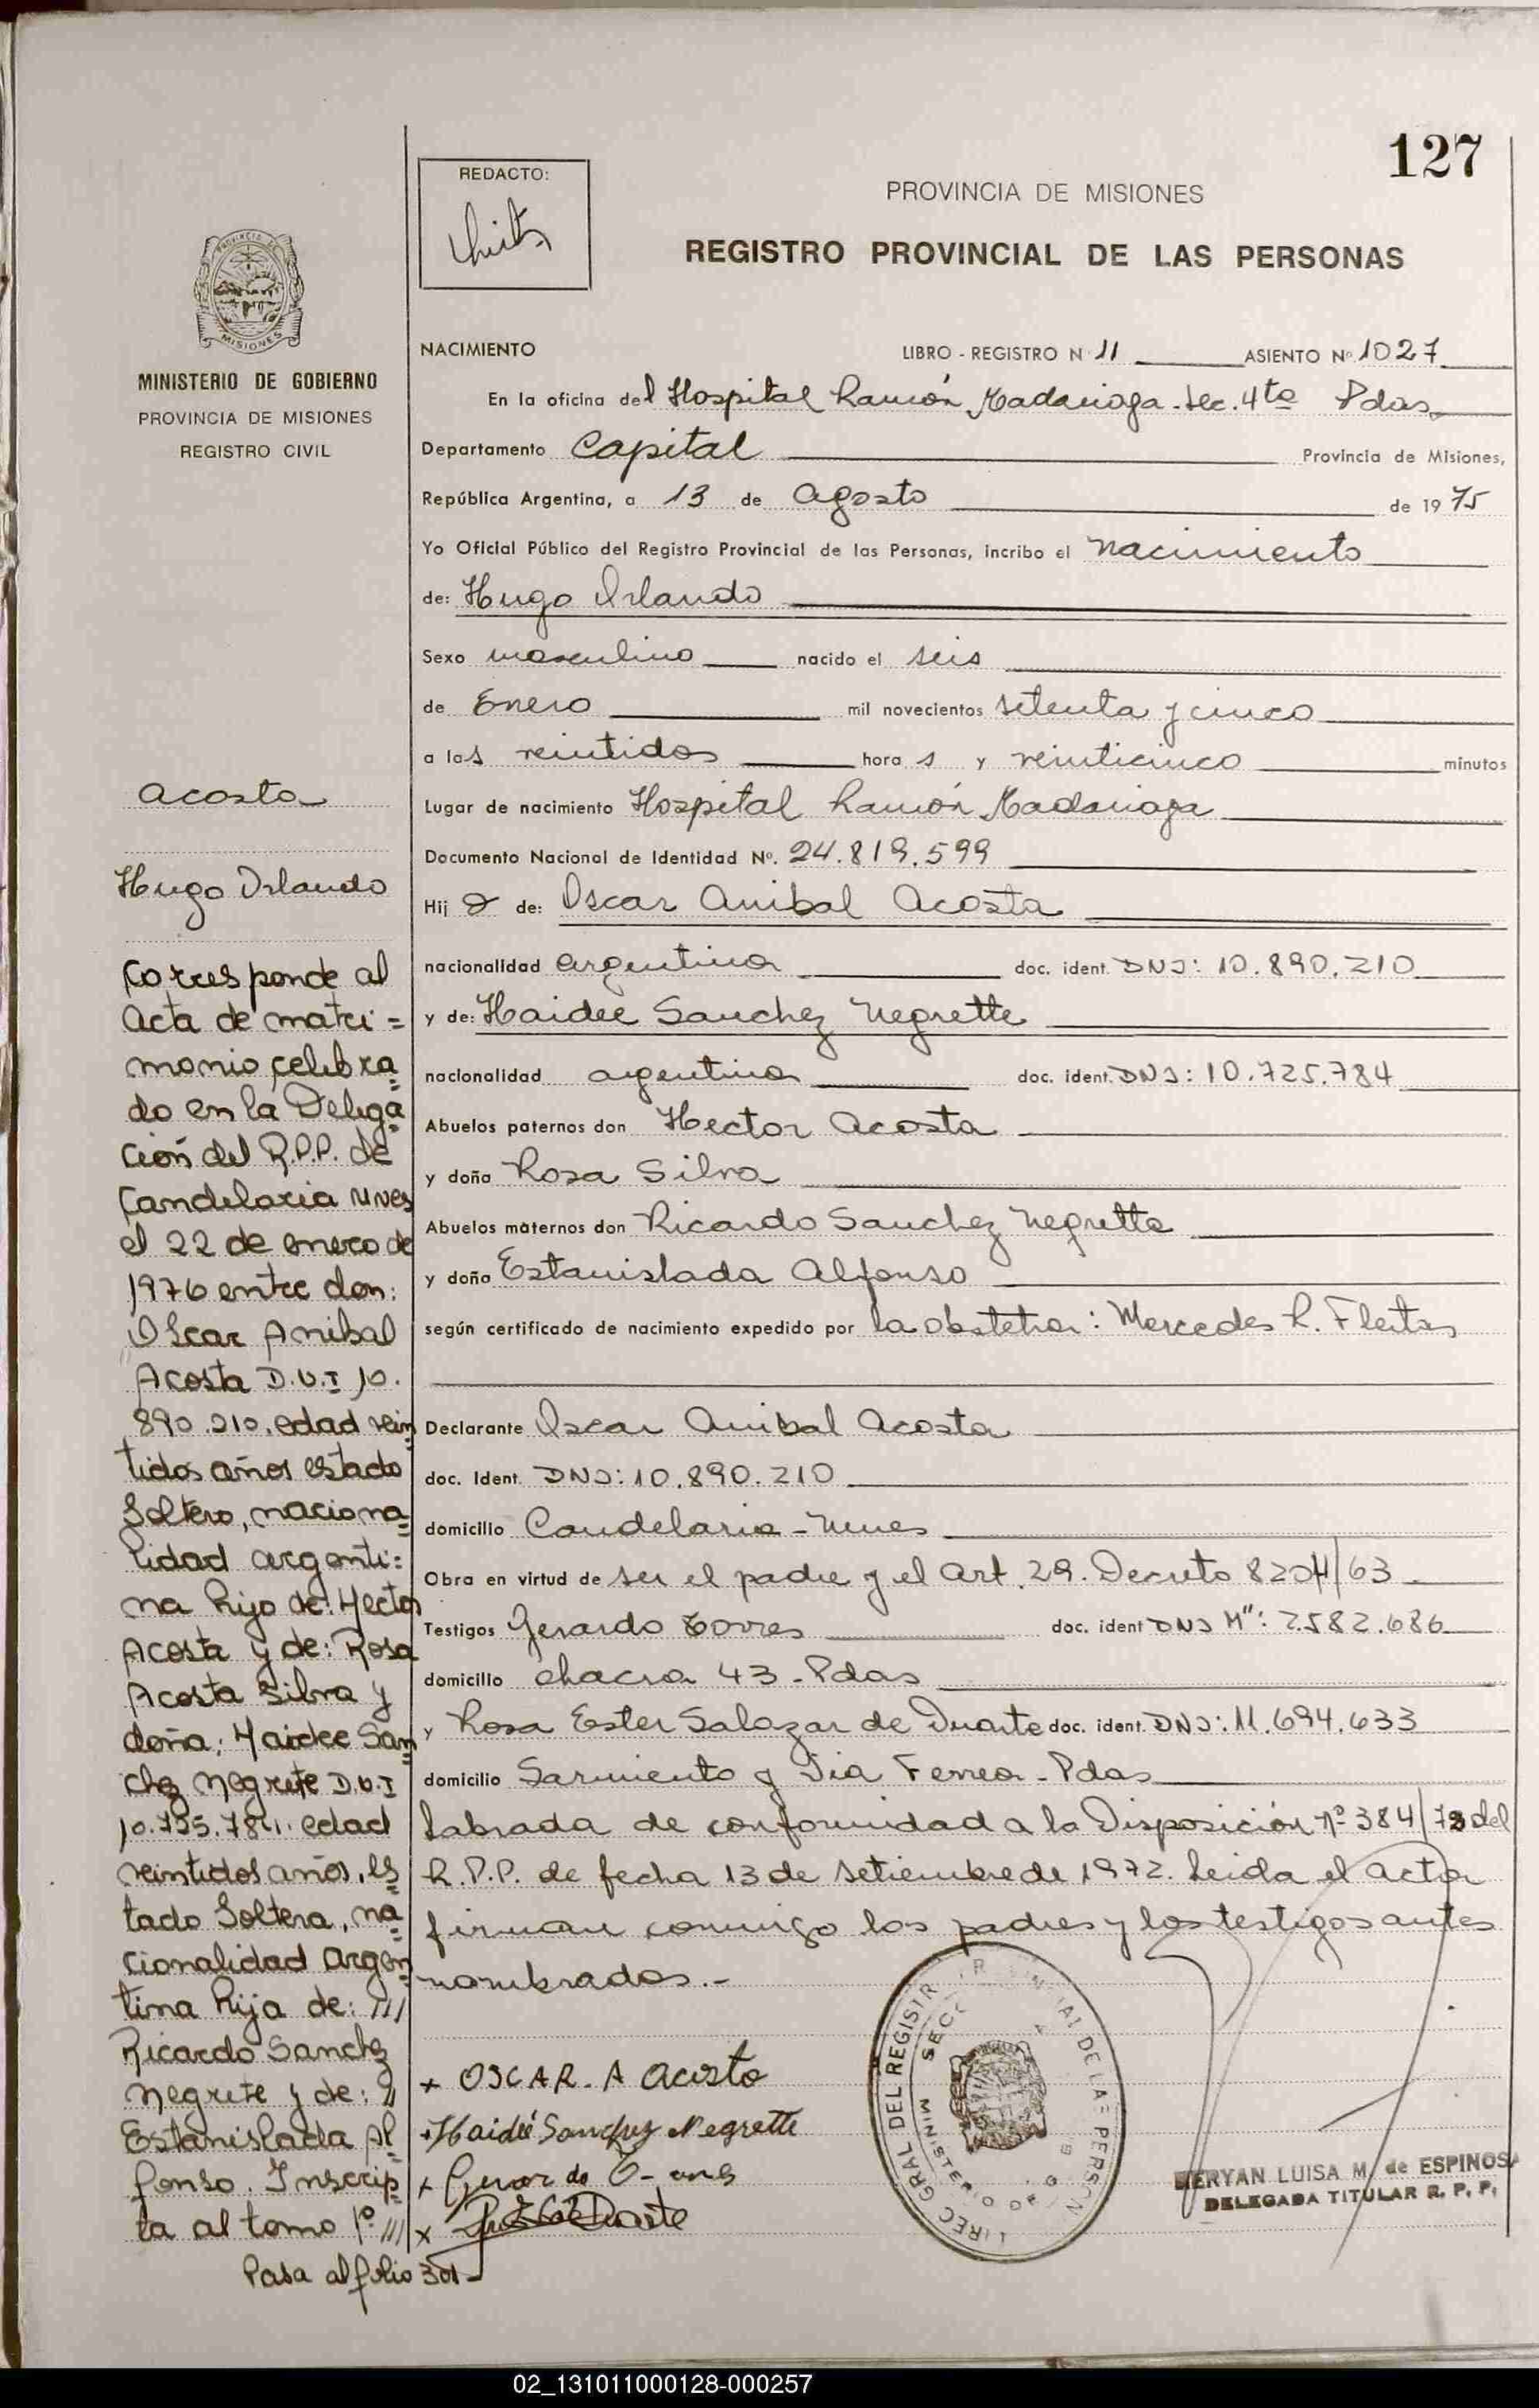 127
REDACTO:
PROVINCIA DE MISIONES
REGISTRO PROVINCIAL DE LAS PERSONAS
PROVINCIA DE
MISIONES
MINISTERIO DE GOBIERNO
PROVINCIA DE MISIONES
REGISTRO CIVIL
NACIMIENTO LIBRO - REGISTRO N 11 ASIENTO Nº 1027
En la oficina del Hospital Ramón Madariaga - Sec. 4ta Pdas
Departamento Capital Provincia de Misiones,
República Argentina, a 13 de agosto de 1975
Yo Oficial Público del Registro Provincial de las Personas, incribo el nacimiento
de: Hugo Orlando
Sexo masculino nacido el seis
de Enero mil novecientos setenta y cinco
a las veintidos horas y veinticinco minutos
Lugar de nacimiento Hospital Ramón Madariaga
Documento Nacional de Identidad Nº. 24.819.599
Hijo de: Oscar Anibal Acosta
nacionalidad argentina doc. ident. DNI: 10.890.210
y de: Haidee Sanchez Negrette
nacionalidad argentina doc. ident. DNI: 10.725.784
Abuelos paternos don Hector Acosta
y doña Rosa Silva
Abuelos maternos don Ricardo Sanchez Negrette
y doña Estanislada Alfonso
según certificado de nacimiento expedido por la obstetra: Mercedes R. Fleitas
Declarante Oscar Anibal Acosta
doc. Ident. DNI: 10.890.210
domicilio Candelaria - Mnes
Obra en virtud de ser el padre y el Art. 29. Decreto 8204/63
Testigos Gerardo Torres doc. ident DNI Mº: 7.582.686
domicilio chacra 43 - Pdas
y Rosa Ester Salazar de Duarte doc. ident. DNI: 11.694.633
domicilio Sarmiento y Via Ferrea - Pdas
Labrada de conformidad a la Disposición Nº 384/72 del
R.P.P. de fecha 13 de setiembre de 1972. Leida el Acta
firman conmigo los padres y los testigos antes
nombrados.-
x OSCAR. A Acosta
x Haideé Sanchez Negrette
x Gerardo
x Duarte
MINISTERIO DE
MERYAN LUISA M. de ESPINOSA
DELEGADA TITULAR R. P. P.
Acosta
Hugo Orlando
Corresponde al
Acta de matri=
monio celebra=
do en la Delega=
ción del R.P.P. de
Candelaria Mnes
el 22 de enero de
1976 entre don:
Oscar Anibal
Acosta D.N.I 10.
890.210. edad vein=
tidos años estado
Soltero, naciona=
lidad argenti=
na hijo de: Hector
Acosta y de: Rosa
Acosta Silva y
doña: Haidee San=
chez Negrete D.N.I
10.725.784. edad
veintidos años, es=
tado Soltera, na=
cionalidad Argen=
tina hija de: ///
Ricardo Sanchez
Negrete y de: //
Estanislada Al=
fonso. Inscrip=
ta al tomo 1º ///
Pasa al folio 301
02_131011000128-000257